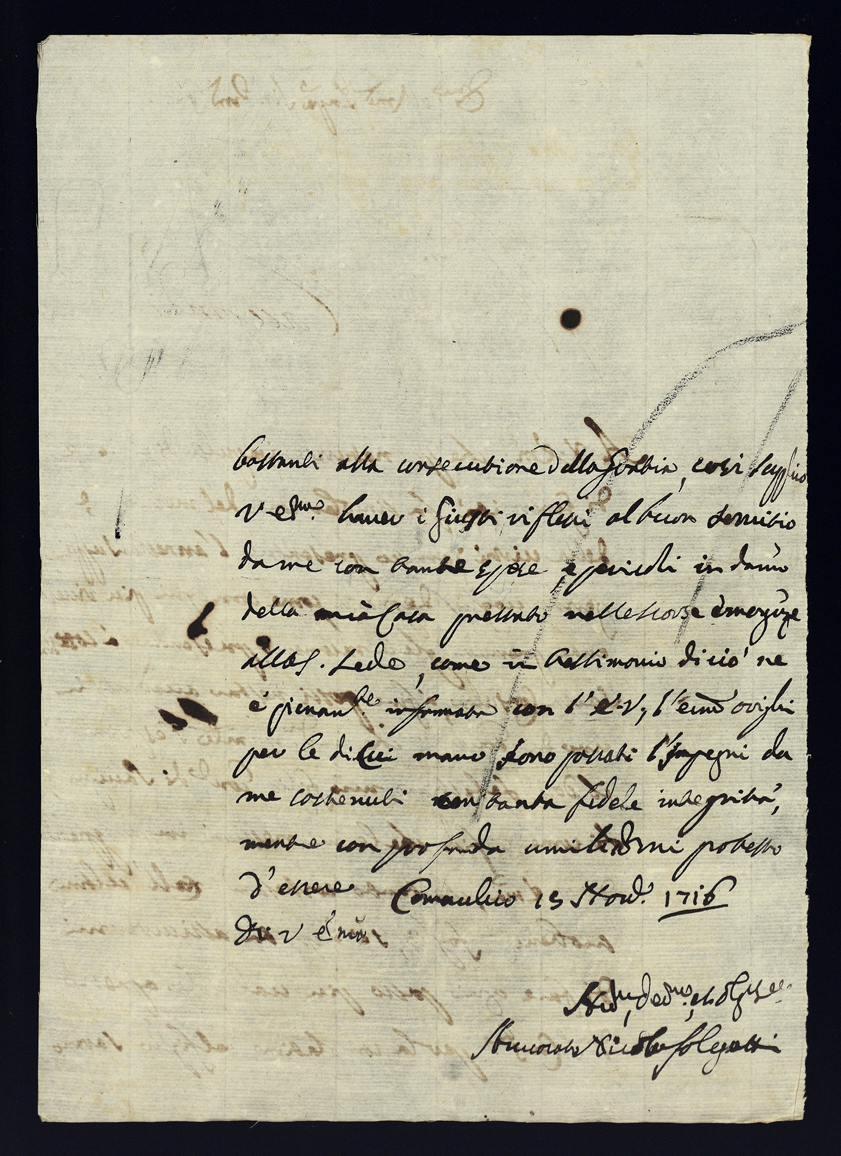 bastanti alla consecutione della Gratia, così supplico
V. Em.ᵃ haver i giusti riflessi al buon servitio
da me con tante spese, e pericoli in danno
della mia Casa prestato nelle scorse emergenze
alla S. Sede, come in testimonio di ciò ne
è pienam.te informata con l'E. V., l'em.o
per le di Cui mano sono passati l'impegni da
me sostenuti con tanta fidele integrità,
mentre con profonda protesto
d'essere Comachio 15 Nov.e 1716
Di V. Em.
Hu.mo, de.mo, et obl.mo
Nicolo